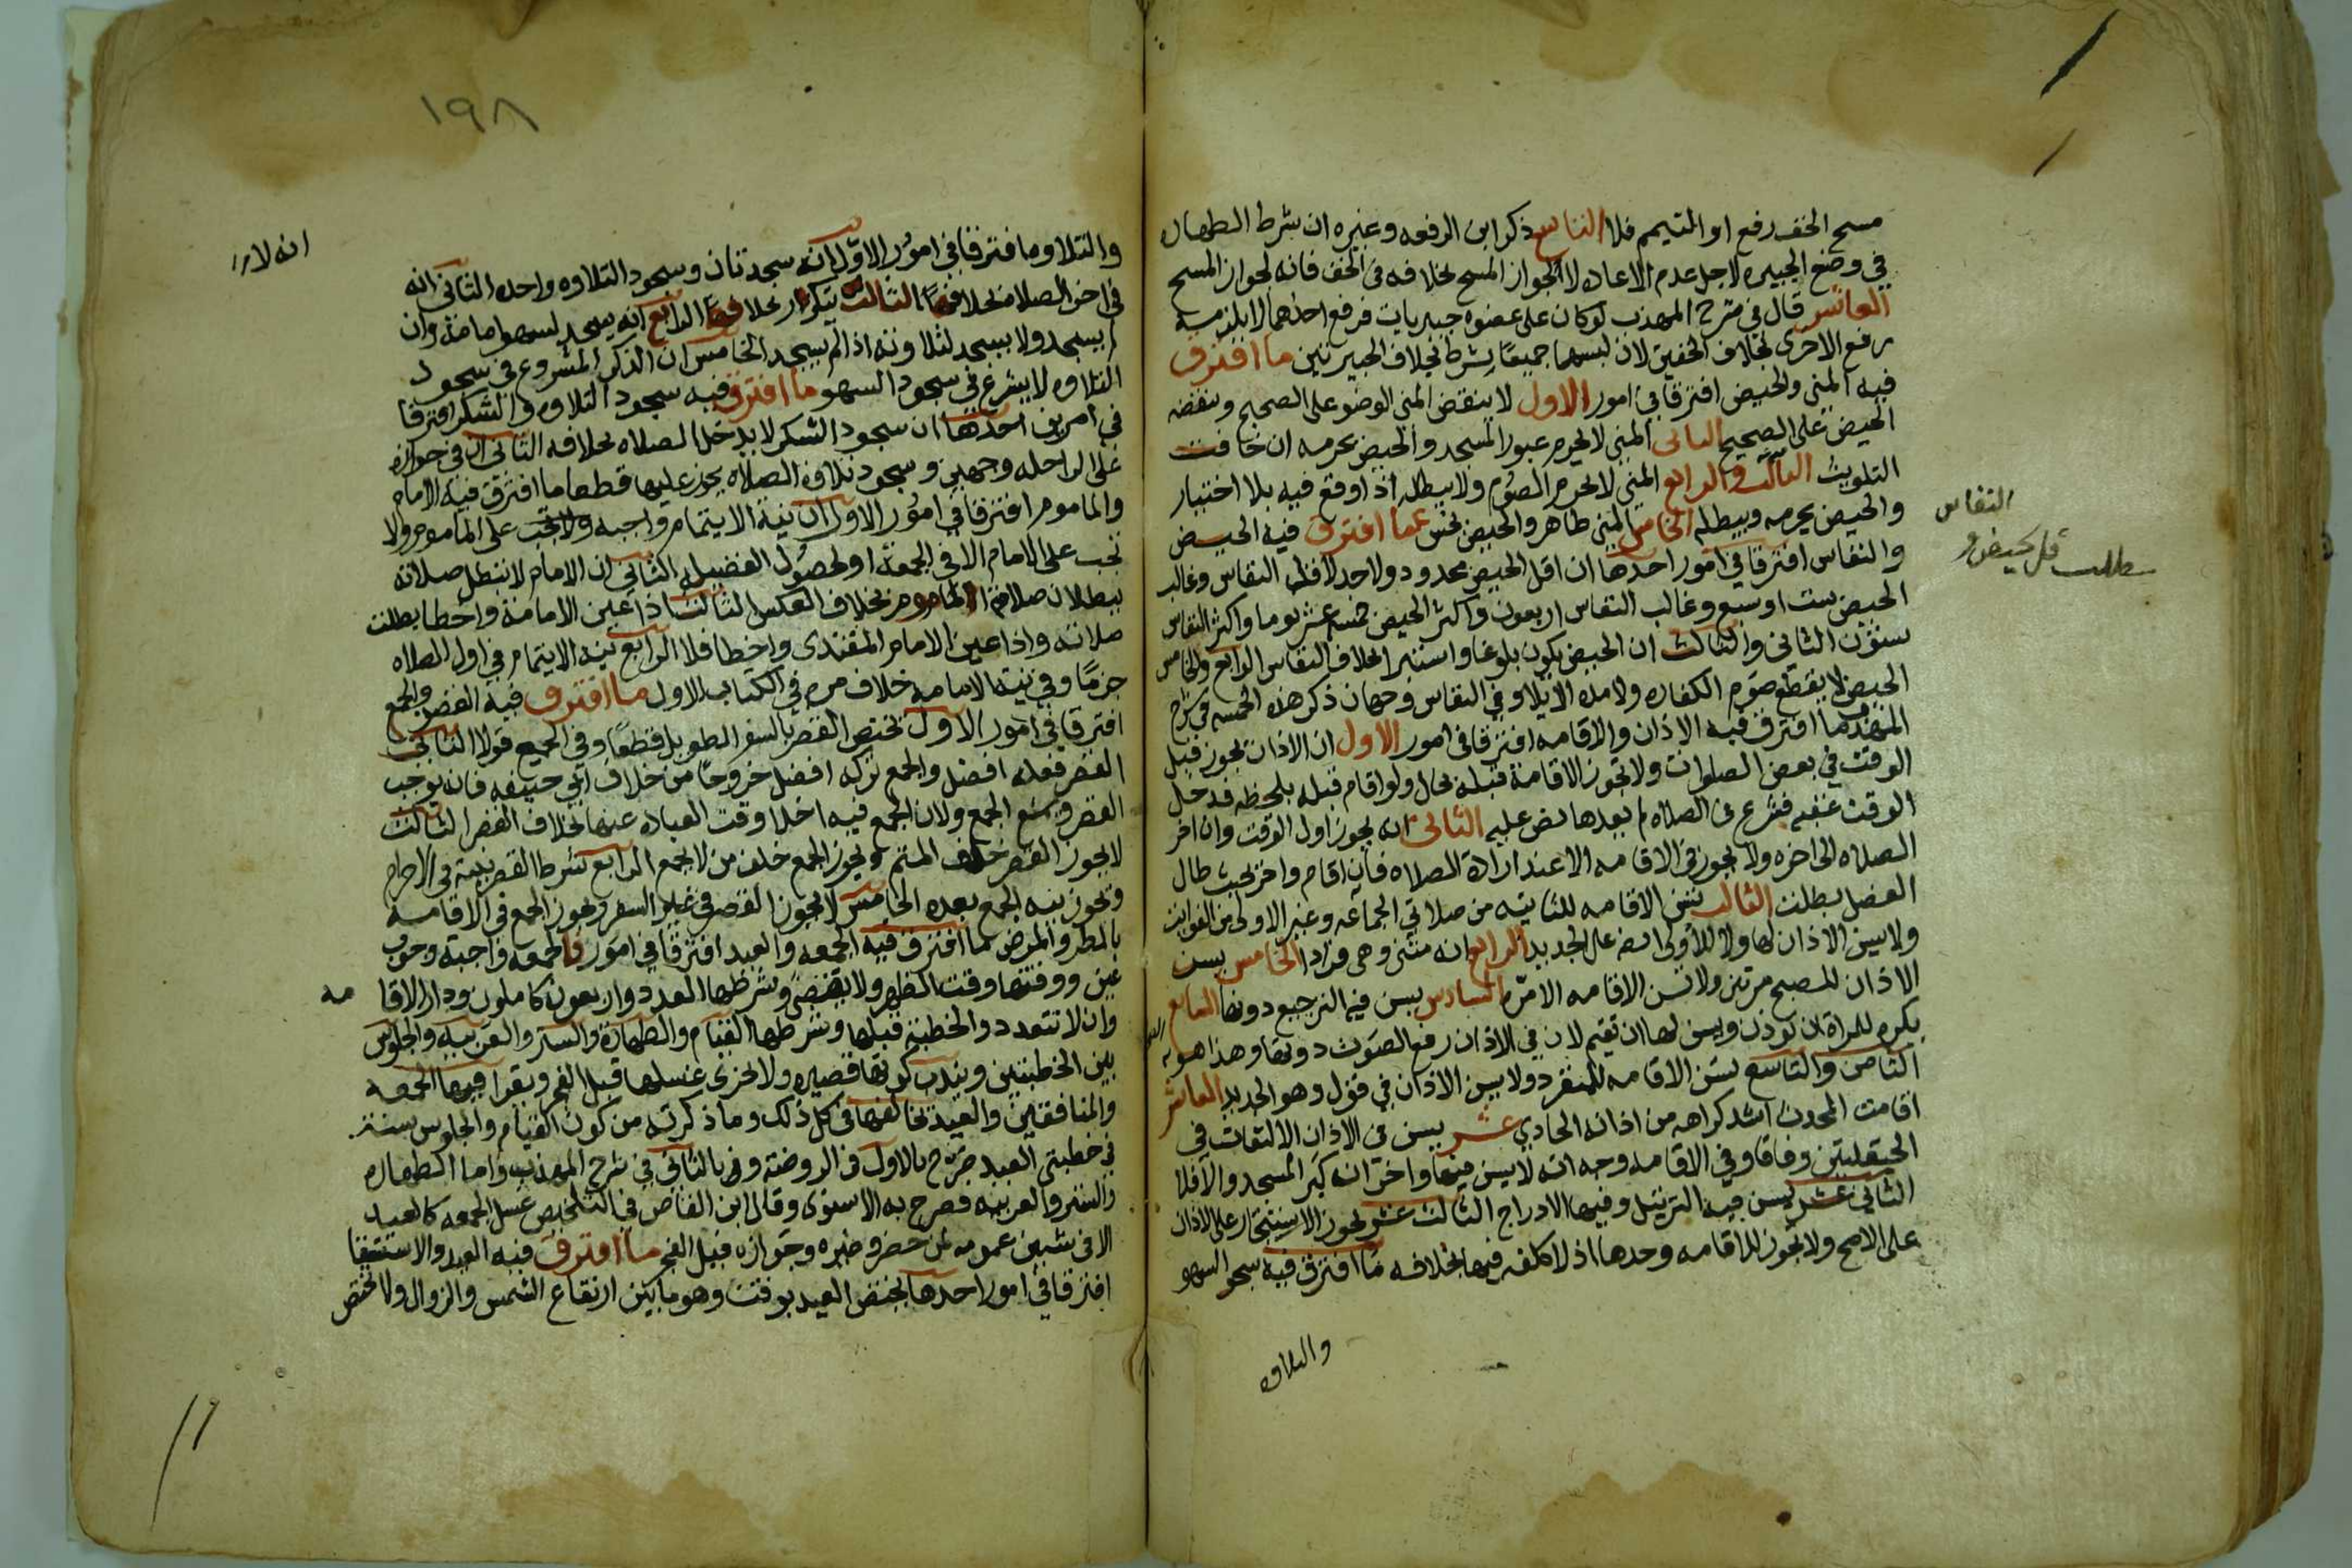 مسح الخف رفع او التيمم فلا التاسع ذكر ابن الرفعه وغيره ان شرط الطهاره
في وضع الجبيره لاجل عدم الاعاده لا لجواز المسح بخلافه في الخف فانه لجواز المسح
العاشر قال في شرح المهذب لو كان على عضوه جبيرتان فرفع احداهما لا يلزمه
رفع الاخرى بخلاف الخفين لان لبسهما جميعًا شرط بخلاف الجبيرتين ما افترق
فيه المني والحيض افترقا في امور الاول لا ينقض المني الوضو على الصحيح وينقضه
الحيض على الصحيح الثاني المني لا يحرم عبور المسجد والحيض يحرمه ان خافت
التلويث الثالث والرابع المني لا يحرم الصوم ولا يبطله اذا وقع فيه بلا اختيار
والحيض يحرمه ويبطله الخامس المني طاهر والحيض نجس ما افترق فيه الحيض
والنفاس افترقا في امور احدها ان اقل الحيض محدود ولا حد لاقل النفاس وغالب
الحيض ست او سبع وغالب النفاس اربعون واكثر الحيض خمسه عشر يوما واكثر النفاس
ستون الثاني والثالث ان الحيض يكون بلوغا واستبرا بخلاف النفاس الرابع والخامس
الحيض لا يقطع صوم الكفاره ولا مده الايلا وفي النفاس وجهان ذكر هذه الخمسه في شرح
المهذب ما افترق فيه الاذان والاقامه افترقا في امور الاول ان الاذان يجوز قبل
الوقت في بعض الصلوات ولا تجوز الاقامة قبله بحال ولو اقام قبله بلحظه فدخل
الوقت عقبه فشرع في الصلاه لم يعتد بها نص عليه الثاني انه يجوز اول الوقت وان اخر
الصلاه الى اخره ولا يجوز في الاقامه الا عند اراده الصلاه فان اقام واخر بحيث طال
الفصل بطلت الثالث تسن الاقامه للثانيه من صلاتي الجماعه وغير الاولى من الفوايت
ولا يسن الاذان لها ولا للاولى ايضا على الجديد الرابع انه مثنى وهي فرادا الخامس يسن
الاذان للصبح مرتين ولا تسن الاقامه الا مره السادس يسن فيه الترجيع دونها السابع
يكره للمراة ان توذن ويسن لها ان تقيم لان في الاذان رفع الصوت دونها وهذا هو
الثامن والتاسع تسن الاقامه للمنفرد ولا يسن الاذان في قول وهو الجديد العاشر
اقامت المحدث اشد كراهه من اذانه الحادي عشر يسن في الاذان الالتفات في
الحيعلتين وفاقا وفي الاقامه وجه انه لا يسن فيها واخر انه كبر المسجد والا فلا
الثاني عشر يسن فيه الترتيل وفيها الادراج الثالث عشر يجوز الاستيجار على الاذان
على الاصح ولا يجوز للاقامه وحدها اذ لا كلفه فيها بخلافه ما افترق فيه سجود السهو
والتلاوه
النفاس
مطلب قل حيض و
١٩٨
والتلاوه افترقا في امور الاول انه سجدتان وسجود التلاوه واحده الثاني انه
في اخر الصلاه بخلافها الثالث يتكرر بخلافها الرابع انه يسجد لسهو امامه وان
لم يسجد ولا يسجد لتلاوته اذا لم يسجد الخامس ان الذكر المشروع في سجود
التلاوه لا يشرع في سجود السهو ما افترق فيه سجود التلاوه والشكر افترقا
في امرين احدهما ان سجود الشكر لا يدخل الصلاه بخلافه الثاني ان في جوازه
على الراحله وجهين وسجود تلاوة الصلاه يجوز عليها قطعا ما افترق فيه الامام
والماموم افترقا في امور الاول ان نية الايتمام واجبه على الماموم ولا
تجب على الامام الا في الجمعة او لحصول الفضيله الثاني ان الامام لا تبطل صلاته
ببطلان صلاة الماموم بخلاف العكس الثالث اذا عين الامامة واخطا بطلت
صلاته واذا عين الامام المقتدى واخطا فلا الرابع نية الايتمام في اول الصلاه
جزمًا وفي نيه الامامه خلاف مر في الكتاب الاول ما افترق فيه القصر والجمع
افترقا في امور الاول يختص القصر بالسفر الطويل قطعًا وفي الجمع قولا الثاني
القصر فعله افضل والجمع تركه افضل خروجًا من خلاف ابي حنيفه فانه يوجب
القصر ويمنع الجمع ولان الجمع فيه اخلا وقت العباده عنها بخلاف القصر الثالث
لا يجوز القصر خلف المتم ويجوز الجمع خلف من لا يجمع الرابع شرط القصر نيته في الاحرام
وتجوز نيه الجمع بعده الخامس لا يجوز القصر في غير السفر ويجوز الجمع في الاقامه
بالمطر والمرض ما افترق فيه الجمعه والعيد افترقا في امور فالجمعه واجبة وجوب
عين ووقتها وقت الظهر ولا تقضى وشرطها العدد واربعون كاملون ودار الاقامه
وان لا تتعدد والخطبة قبلها وشرطها القيام والطهارة والستر والعربيه والجلوس
بين الخطبتين ويندب كونها قصيره ولا يجزى غسلها قبل الفجر ويقرا فيها الجمعه
والمنافقين والعيد يخالفها في كل ذلك وما ذكرته من كون القيام والجلوس سنة
في خطبتي العيد صرح بالاول في الروضة وفي بالثاني في شرح المهذب واما الطهاره
والستر والعربيه فصرح به الاسنوى وقال ابن القاص في التلخيص غسل الجمعه كالعيد
الا في شيين عمومه لمن حضر وغيره وجوازه قبل الفجر ما افترق فيه العيد والاستسقا
افترقا في امور احدها يختص العيد بوقت وهو ما بين ارتفاع الشمس والزوال ولا يختص
انه لا